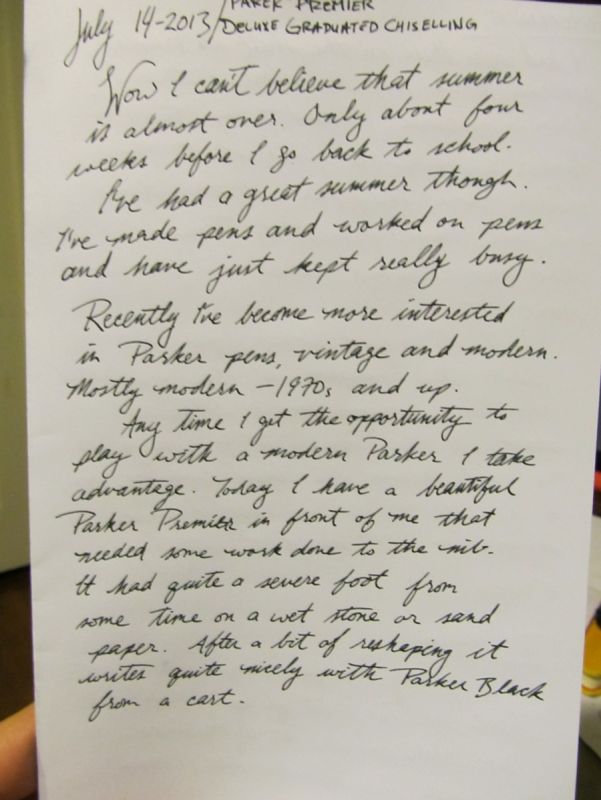 July 14-2013/PAREK PREMIER
DELUXE GRADUATED CHISELLING
Wow I can't believe that summer
is almost over. Only about four
weeks before I go back to school.
I've had a great summer though.
I've made pens and worked on pens
and have just kept really busy.
Recently I've become more interested
in Parker pens, vintage and modern.
Mostly modern - 1970s and up.
Any time I get the opportunity to
play with a modern Parker I take
advantage. Today I have a beautiful
Parker Premier in front of me that
needed some work done to the nib.
It had quite a severe foot from
some time on a wet stone or sand
paper. After a bit of reshaping it
writes quite nicely with Parker Black
from a cart.